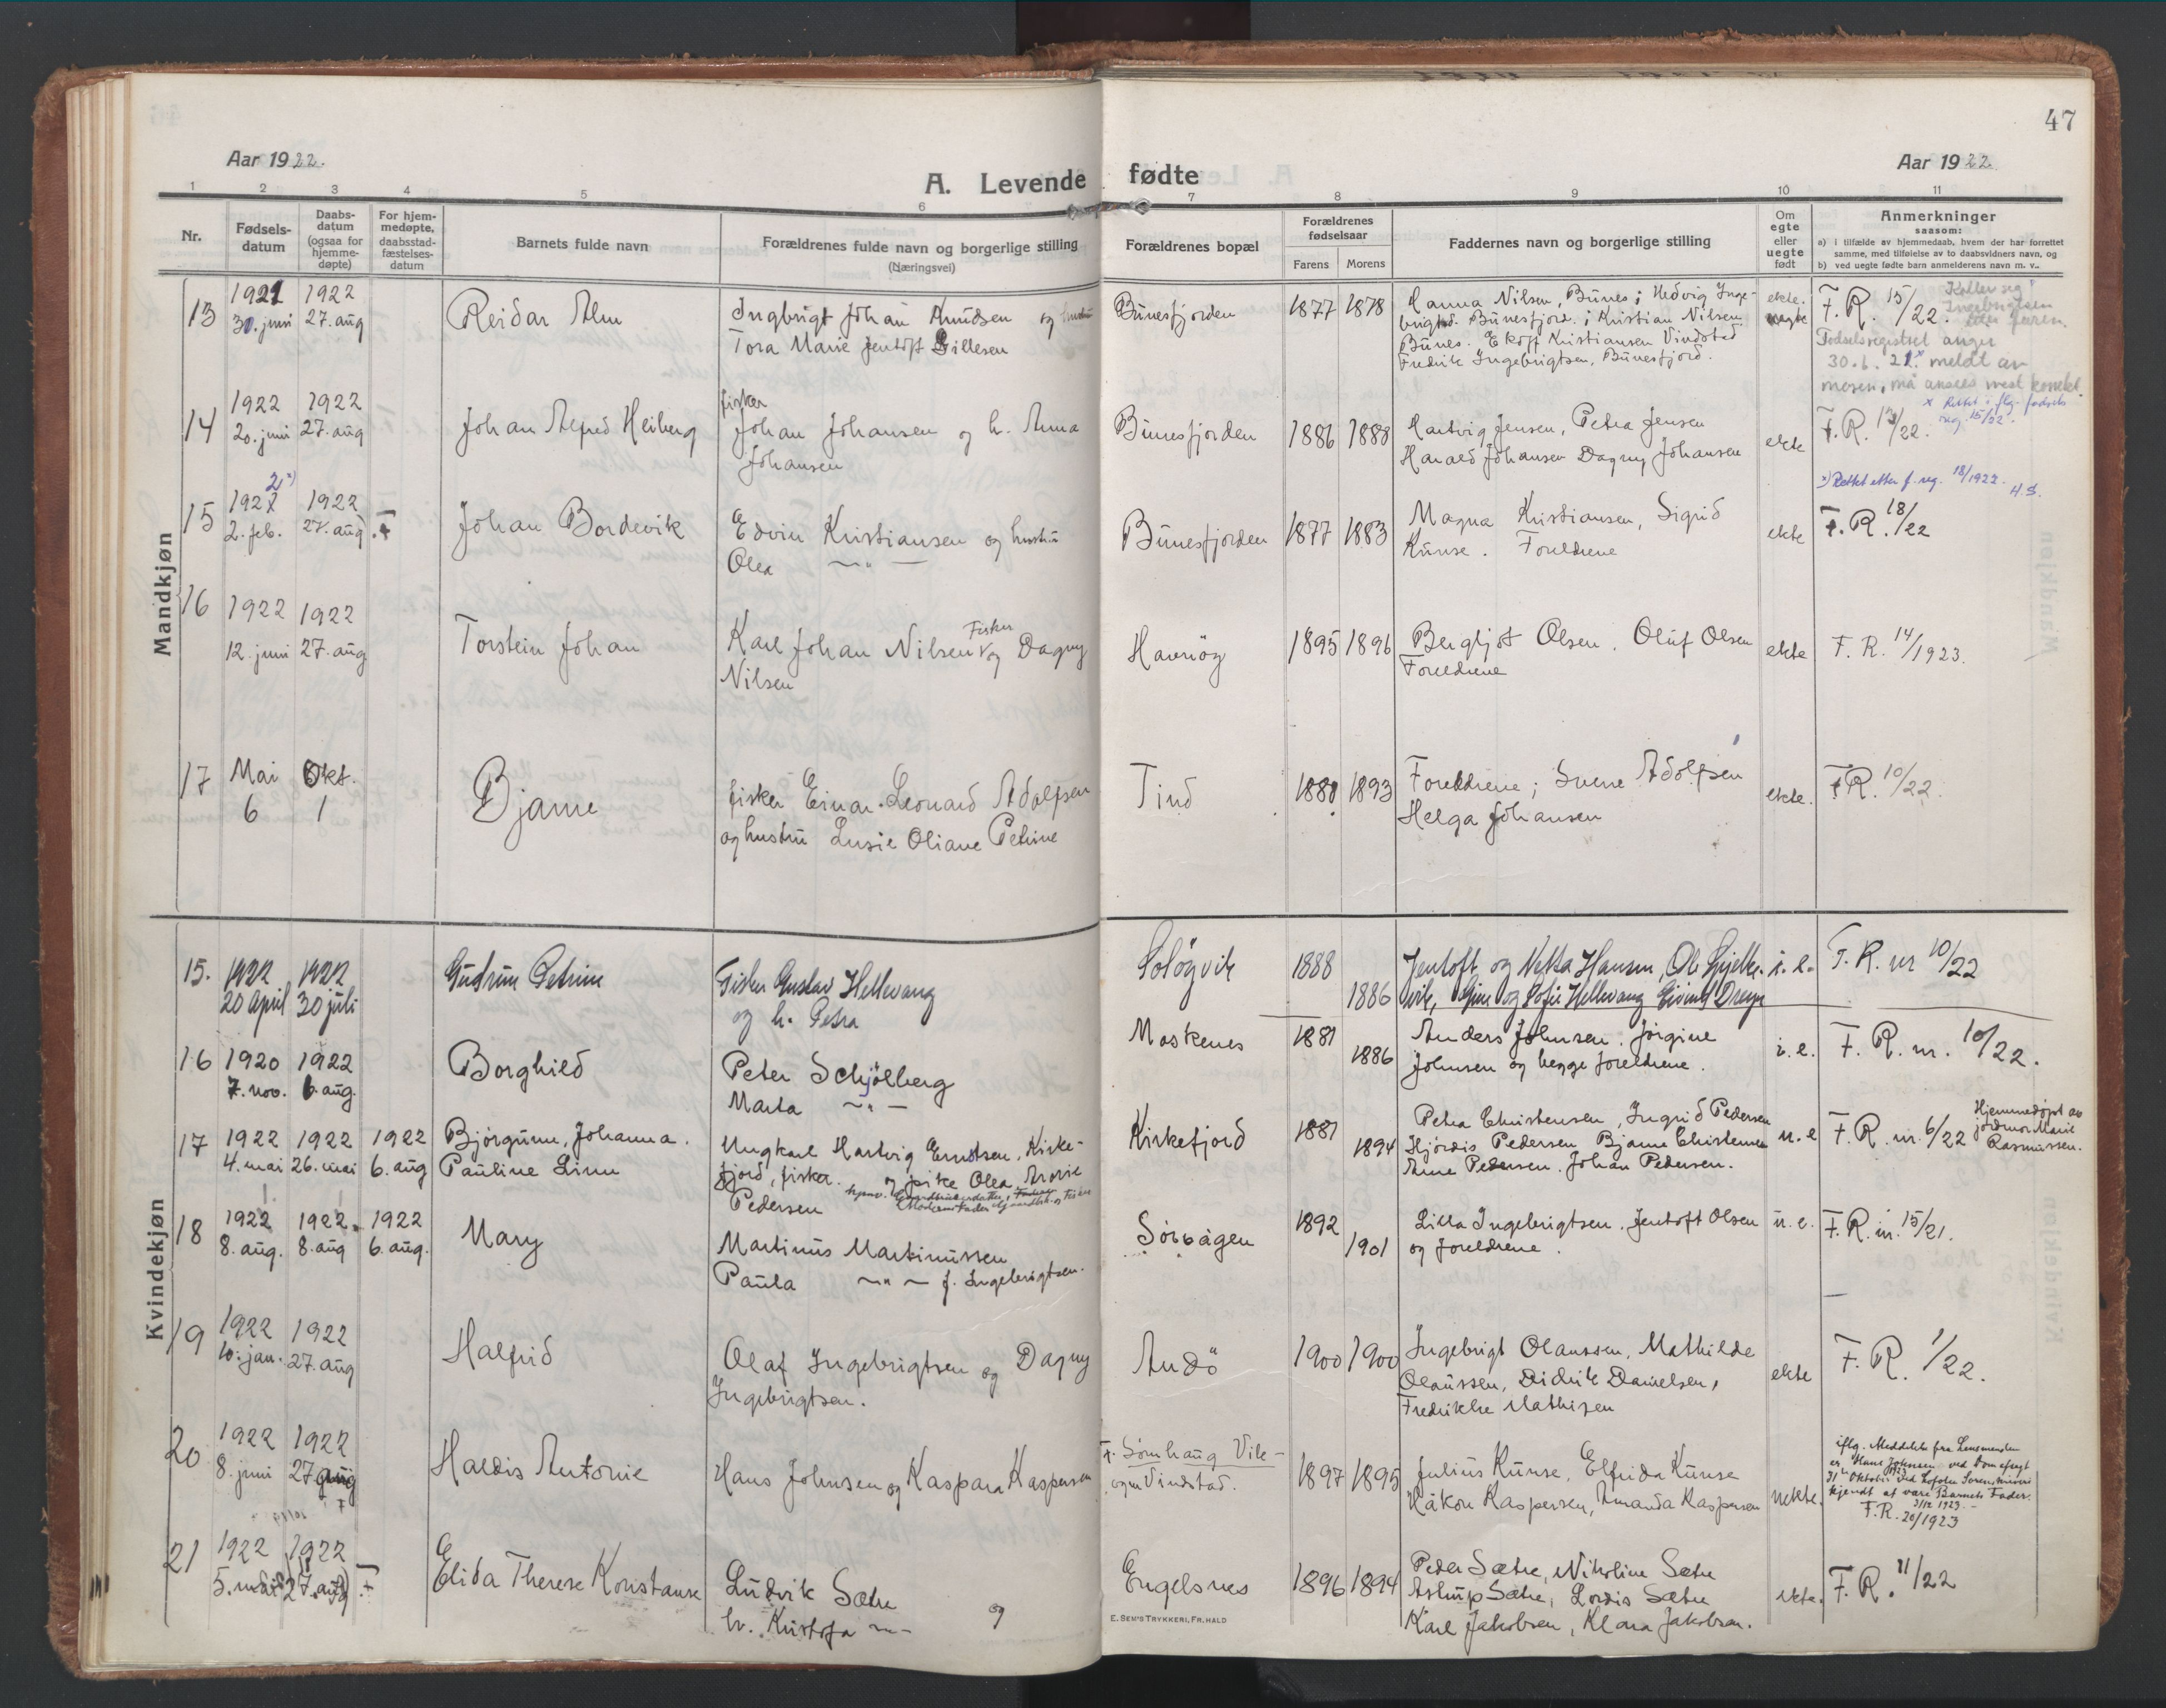 47
Aar 1922.
A. Levende fødte
Aar 1922
1 2 3 4 5 6 7 8 9 10 11
Nr.
Fødsels-
datum
Daabs-
datum
(ogsaa for
hjemme-
døpte)
For hjem-
medøpte,
daabsstad-
fæstelses-
datum
Barnets fulde navn
Forældrenes fulde navn og borgerlige stilling
(Næringsvei)
Forældrenes bopæl
Forældrenes
fødselsaar
Farens Morens
Faddernes navn og borgerlige stilling
Om
egte
eller
uegte
født
Anmerkninger
saasom:
a) i tilfælde av hjemmedaab, hvem der har forrettet
samme, med tilføielse av to daabsvidners navn, og
b) ved uegte fødte barn anmelderens navn m. v..
Mandkjøn
13
1921
30. juni
1922
27. aug
Reidar Alm
Ingbrigt Johan Knudsen og hustru
Tora Marie Jentoft Gillesen
Bunesfjorden
1877 1878
Hanna Nilsen, Bunes; Hedvig Inge-
brigts. Bunesfjord.; Kristian Nilsen
Bunes. Ekoff Kristiansen Vindstad
Fredrik Ingebrigtsen, Bunesfjord.
ekte.
F. R. 15/22.
Kaller seg
Ingebrigtsen
etter faren.
Fødselsregistret angir
30.6.21.x meldt av
moren, må ansees mest korrekt.
x Rettet i flg. fødsels
reg. 15/22.
14
1922
20. juni
1922
27. aug
Johan Alfred Heiberg
fisker
Johan Johansen og h. Anna
Johansen
Bunesfjorden
1886 1888
Hartvig Jensen, Petra Jensen
Harald Johansen Dagny Johansen
ekte
F. R. /22.
x) Rettet etter f. reg. 18/1922. H.S.
15
1922
2. feb.
1922
27. aug
Johan Bordevik
Edvin Kristiansen og hustru
Olea —"—
Bunesfjorden
1877 1883
Magna Kristiansen, Sigrid
Kunse. Foreldrene
ekte
F. R. 18/22
16
1922
12. juni
1922
27. aug
Torstein Johan
Karl Johan Nilsen Fisker og Dagny
Nilsen
Havnög
1895 1896
Bergljot Olsen. Oluf Olsen
Foreldrene
ekte
F. R. 14/1923.
17
Mai
6
Okt.
1
Bjarne
fisker Einar Leonard Adolfsen
og hustru Lusie Oliane Petrine
Tind
1888 1893
Foreldrene; Sverre Adolfsen
Helga Johansen
ekte.
F. R. 10/22.
Kvindekjøn
15.
1922
20 april
1922
30 juli
Gudrun Petrine
Fisker Gustav Hellevang
og h. Petra
Solögvik
1888
1886
Jentoft og Netta Hansen, Ole Gjelte-
vik, Gine og Sofie Hellevang Eivind Dreyer
i. e.
F. R. nr 10/22
16
1920
7. nov.
1922
6. aug.
Borghild
Peter Schjölberg
Marta —"—
Moskenes
1881
1886
Anders Johnsen. Jörgine
Johnsen og begge foreldrene.
i. e.
F. R. nr. 10/22.
17
1922
4. mai
1922
26. mai
1922
6. aug
Bjørgunn, Johanna.
Pauline Linn
Ungkarl Hartvig Ernstsen, Kirke-
fjord, fisker. og pike Olea Arovie
Pedersen
Kirkefjord
1881
1894
Petra Christensen, Ingrid Pedersen
Hjördis Pedersen Bjarne Christensen
Anne Pedersen. Johan Pedersen.
u. e
F. R. nr. 6/22
Hjemmedøpt av
jordmor Marie
Rasmussen.
18
1922
8. aug.
1922
8. aug
1922
6. aug.
Mary
Martinus Martinussen
Paula —"— f. Ingebrigtsen.
Sörvågen
1892
1901
Lilla Ingebrigtsen. Jentoft Olsen
og foreldrene.
u. e.
F. R. nr. 15/21.
19
1922
10. jan.
1922
27. aug
Halfrid
Olaf Ingebrigtsen og Dagny
Ingebrigtsen.
Andö
1900 1900
Ingebrigt Olaussen, Mathilde
Olaussen, Didrik Danielsen,
Fredrikke Mathisen
ekte
F. R. 1/22.
20
1922
8. juni
1922
27 aug
Haldis Antonie
Hans Johnsen og Kaspara Kaspersen
F. Sörnhaug Vik-
ogm Vindstad.
1897 1895
Julius Kunse, Elfrida Kunse
Håkon Kaspersen, Amanda Kaspersen
uekte.
iflg. Meddelelse fra Lensmanden
er Hans Johnsen ved Dom efsagt
31 Oktober 1923 ved Lofoten Sorenskriveri
kjendt at være Barnets Fader.
3/12 1923.
F. R. 20/1923
21
1922
5. mai
1922
27. aug
Elida Therese Konstanse
Ludvik Sætre og
h. Kristofa —"—
Engelsnes
1896 1894
Peder Sætre, Nikoline Sætre
Astrup Sætre, Lordis Sætre
Karl Jakobsen, Klara Jakobsen.
ekte.
F. R. 11/22
E. SEM'S TRYKKERI, FR. HALD